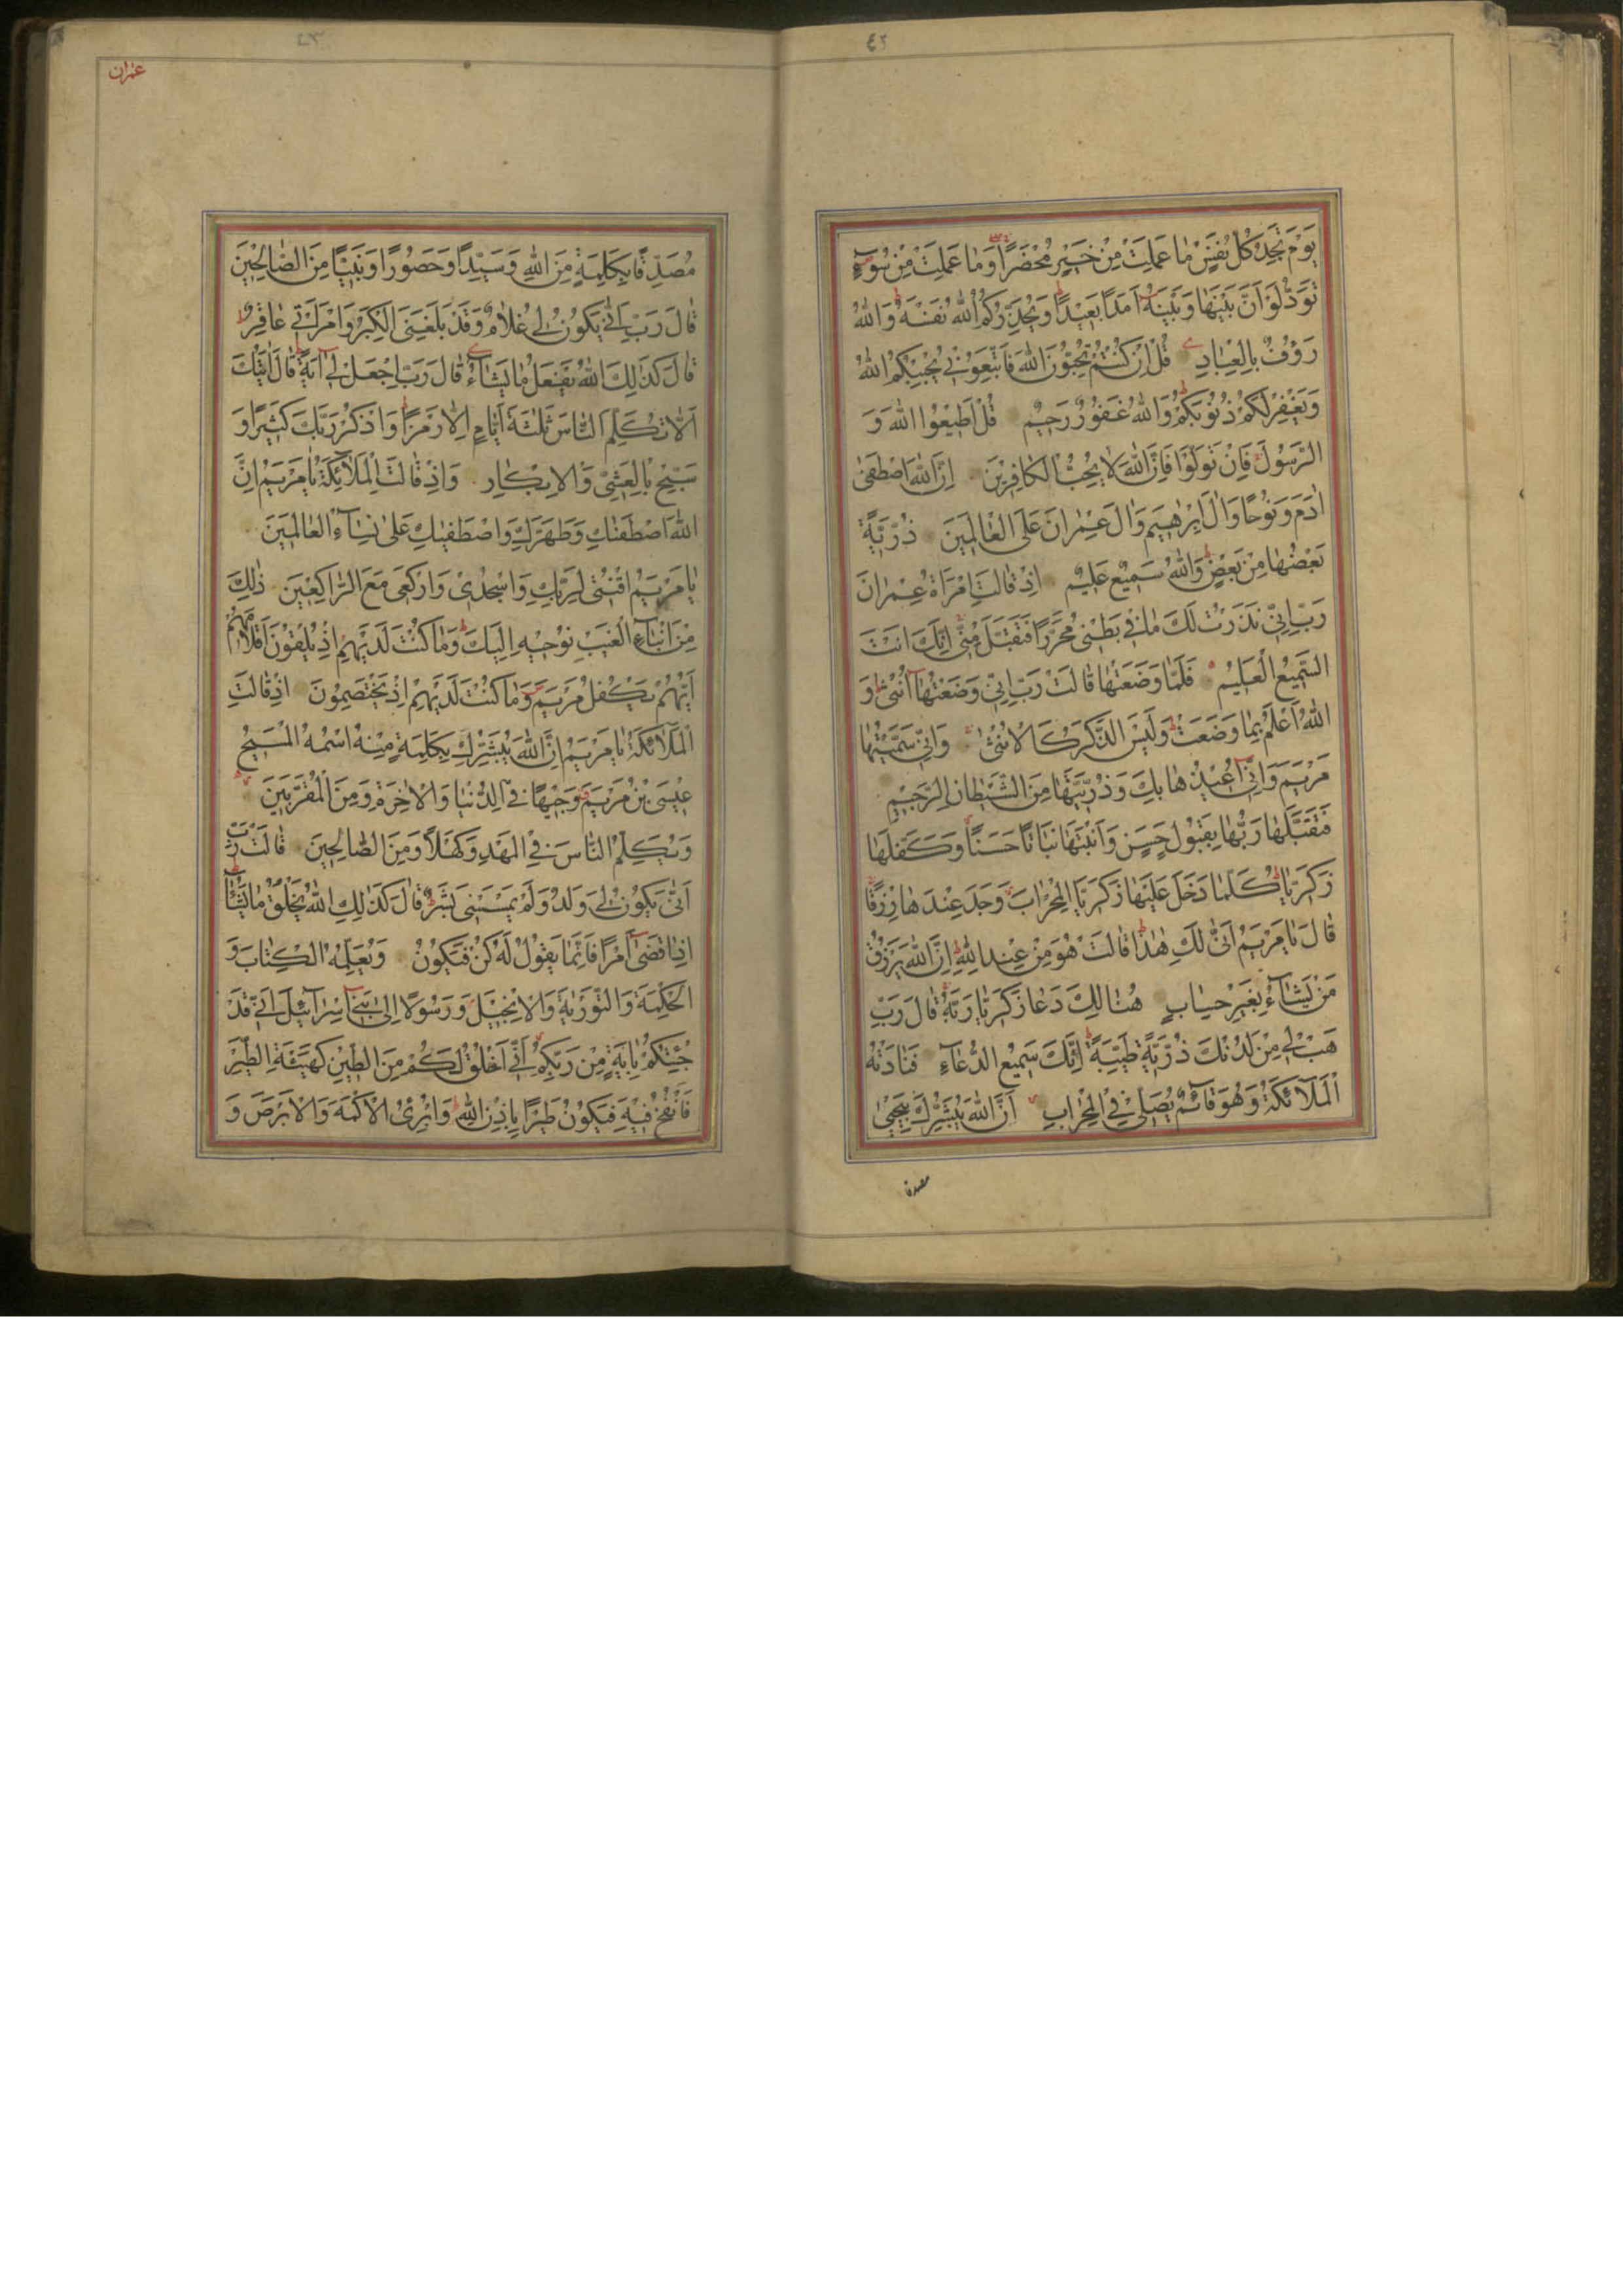 ٤٢
يَوْمَ تَجِدُ كُلُّ نَفْسٍ مٰا عَمِلَتْ مِنْ خَيْرٍ مُحْضَرًا وَمٰا عَمِلَتْ مِنْ سُوءٍ
تَوَدُّ لَوْ اَنَّ بَيْنَهٰا وَبَيْنَهُ اَمَدًا بَعِيْدًا وَيُحَذِّرُكُمُ اللّٰهُ نَفْسَهُ وَاللّٰهُ
رَؤُفٌ بِالْعِبٰادِ قُلْ اِنْ كُنْتُمْ تُحِبُّونَ اللّٰهَ فَاتَّبِعُوْنِي يُحْبِبْكُمُ اللّٰهُ
وَيَغْفِرْ لَكُمْ ذُنُوْبَكُمْ وَاللّٰهُ غَفُوْرٌ رَحِيْمٌ قُلْ اَطِيْعُوا اللّٰهَ وَ
الرَّسُوْلَ فَاِنْ تَوَلَّوْا فَاِنَّ اللّٰهَ لَا يُحِبُّ الْكٰافِرِيْنَ اِنَّ اللّٰهَ اصْطَفٰى
اٰدَمَ وَنُوْحًا وَاٰلَ اِبْرٰهِيْمَ وَاٰلَ عِمْرٰانَ عَلَى الْعٰالَمِيْنَ ذُرِّيَّةً
بَعْضُهٰا مِنْ بَعْضٍ وَاللّٰهُ سَمِيْعٌ عَلِيْمٌ اِذْ قٰالَتِ امْرَاَةُ عِمْرٰانَ
رَبِّ اِنِّي نَذَرْتُ لَكَ مٰا فِي بَطْنِي مُحَرَّرًا فَتَقَبَّلْ مِنِّي اِنَّكَ اَنْتَ
السَّمِيْعُ الْعَلِيْمُ فَلَمّٰا وَضَعَتْهٰا قٰالَتْ رَبِّ اِنِّي وَضَعْتُهٰا اُنْثٰى وَ
اللّٰهُ اَعْلَمُ بِمٰا وَضَعَتْ وَلَيْسَ الذَّكَرُ كَالْاُنْثٰى وَاِنِّي سَمَّيْتُهٰا
مَرْيَمَ وَاِنِّي اُعِيْذُهٰا بِكَ وَذُرِّيَّتَهٰا مِنَ الشَّيْطٰانِ الرَّجِيْمِ
فَتَقَبَّلَهٰا رَبُّهٰا بِقَبُوْلٍ حَسَنٍ وَاَنْبَتَهٰا نَبٰاتًا حَسَنًا وَكَفَّلَهٰا
زَكَرِيّٰا كُلَّمٰا دَخَلَ عَلَيْهٰا زَكَرِيَّا الْمِحْرٰابَ وَجَدَ عِنْدَهٰا رِزْقًا
قٰالَ يٰا مَرْيَمُ اَنّٰى لَكِ هٰذٰا قٰالَتْ هُوَ مِنْ عِنْدِ اللّٰهِ اِنَّ اللّٰهَ يَرْزُقُ
مَنْ يَشٰآءُ بِغَيْرِ حِسٰابٍ هُنٰالِكَ دَعٰا زَكَرِيّٰا رَبَّهُ قٰالَ رَبِّ
هَبْ لِي مِنْ لَدُنْكَ ذُرِّيَّةً طَيِّبَةً اِنَّكَ سَمِيْعُ الدُّعٰآءِ فَنٰادَتْهُ
الْمَلٰآئِكَةُ وَهُوَ قٰآئِمٌ يُصَلِّي فِي الْمِحْرٰابِ اَنَّ اللّٰهَ يُبَشِّرُكَ بِيَحْيٰى
مصدقا
٤٣
عمران
مُصَدِّقًا بِكَلِمَةٍ مِنَ اللّٰهِ وَسَيِّدًا وَحَصُوْرًا وَنَبِيًّا مِنَ الصّٰالِحِيْنَ
قٰالَ رَبِّ اَنّٰى يَكُوْنُ لِي غُلٰامٌ وَقَدْ بَلَغَنِيَ الْكِبَرُ وَامْرَاَتِي عٰاقِرٌ
قٰالَ كَذٰلِكَ اللّٰهُ يَفْعَلُ مٰا يَشٰآءُ قٰالَ رَبِّ اجْعَلْ لِي اٰيَةً قٰالَ اٰيَتُكَ
اَلّٰا تُكَلِّمَ النّٰاسَ ثَلٰثَةَ اَيّٰامٍ اِلّٰا رَمْزًا وَاذْكُرْ رَبَّكَ كَثِيْرًا وَ
سَبِّحْ بِالْعَشِيِّ وَالْاِبْكٰارِ وَاِذْ قٰالَتِ الْمَلٰآئِكَةُ يٰا مَرْيَمُ اِنَّ
اللّٰهَ اصْطَفٰىكِ وَطَهَّرَكِ وَاصْطَفٰىكِ عَلٰى نِسٰآءِ الْعٰالَمِيْنَ
يٰا مَرْيَمُ اقْنُتِي لِرَبِّكِ وَاسْجُدِيْ وَارْكَعِي مَعَ الرّٰاكِعِيْنَ ذٰلِكَ
مِنْ اَنْبٰآءِ الْغَيْبِ نُوْحِيْهِ اِلَيْكَ وَمٰا كُنْتَ لَدَيْهِمْ اِذْ يُلْقُوْنَ اَقْلٰامَهُمْ
اَيُّهُمْ يَكْفُلُ مَرْيَمَ وَمٰا كُنْتَ لَدَيْهِمْ اِذْ يَخْتَصِمُوْنَ اِذْ قٰالَتِ
الْمَلٰآئِكَةُ يٰا مَرْيَمُ اِنَّ اللّٰهَ يُبَشِّرُكِ بِكَلِمَةٍ مِنْهُ اسْمُهُ الْمَسِيْحُ
عِيْسَى بْنُ مَرْيَمَ وَجِيْهًا فِي الدُّنْيٰا وَالْاٰخِرَةِ وَمِنَ الْمُقَرَّبِيْنَ
وَيُكَلِّمُ النّٰاسَ فِي الْمَهْدِ وَكَهْلًا وَمِنَ الصّٰالِحِيْنَ قٰالَتْ رَبِّ
اَنّٰى يَكُوْنُ لِي وَلَدٌ وَلَمْ يَمْسَسْنِي بَشَرٌ قٰالَ كَذٰلِكِ اللّٰهُ يَخْلُقُ مٰا يَشٰآءُ
اِذٰا قَضٰى اَمْرًا فَاِنَّمٰا يَقُوْلُ لَهُ كُنْ فَيَكُوْنُ وَيُعَلِّمُهُ الْكِتٰابَ وَ
الْحِكْمَةَ وَالتَّوْرٰيةَ وَالْاِنْجِيْلَ وَرَسُوْلًا اِلٰى بَنِي اِسْرٰآئِيْلَ اَنِّي قَدْ
جِئْتُكُمْ بِاٰيَةٍ مِنْ رَبِّكُمْ اَنِّي اَخْلُقُ لَكُمْ مِنَ الطِّيْنِ كَهَيْئَةِ الطَّيْرِ
فَاَنْفُخُ فِيْهِ فَيَكُوْنُ طَيْرًا بِاِذْنِ اللّٰهِ وَاُبْرِئُ الْاَكْمَهَ وَالْاَبْرَصَ وَ